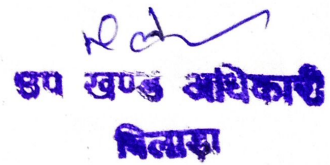 उप खण्ड अधिकारी
बिलाड़ा